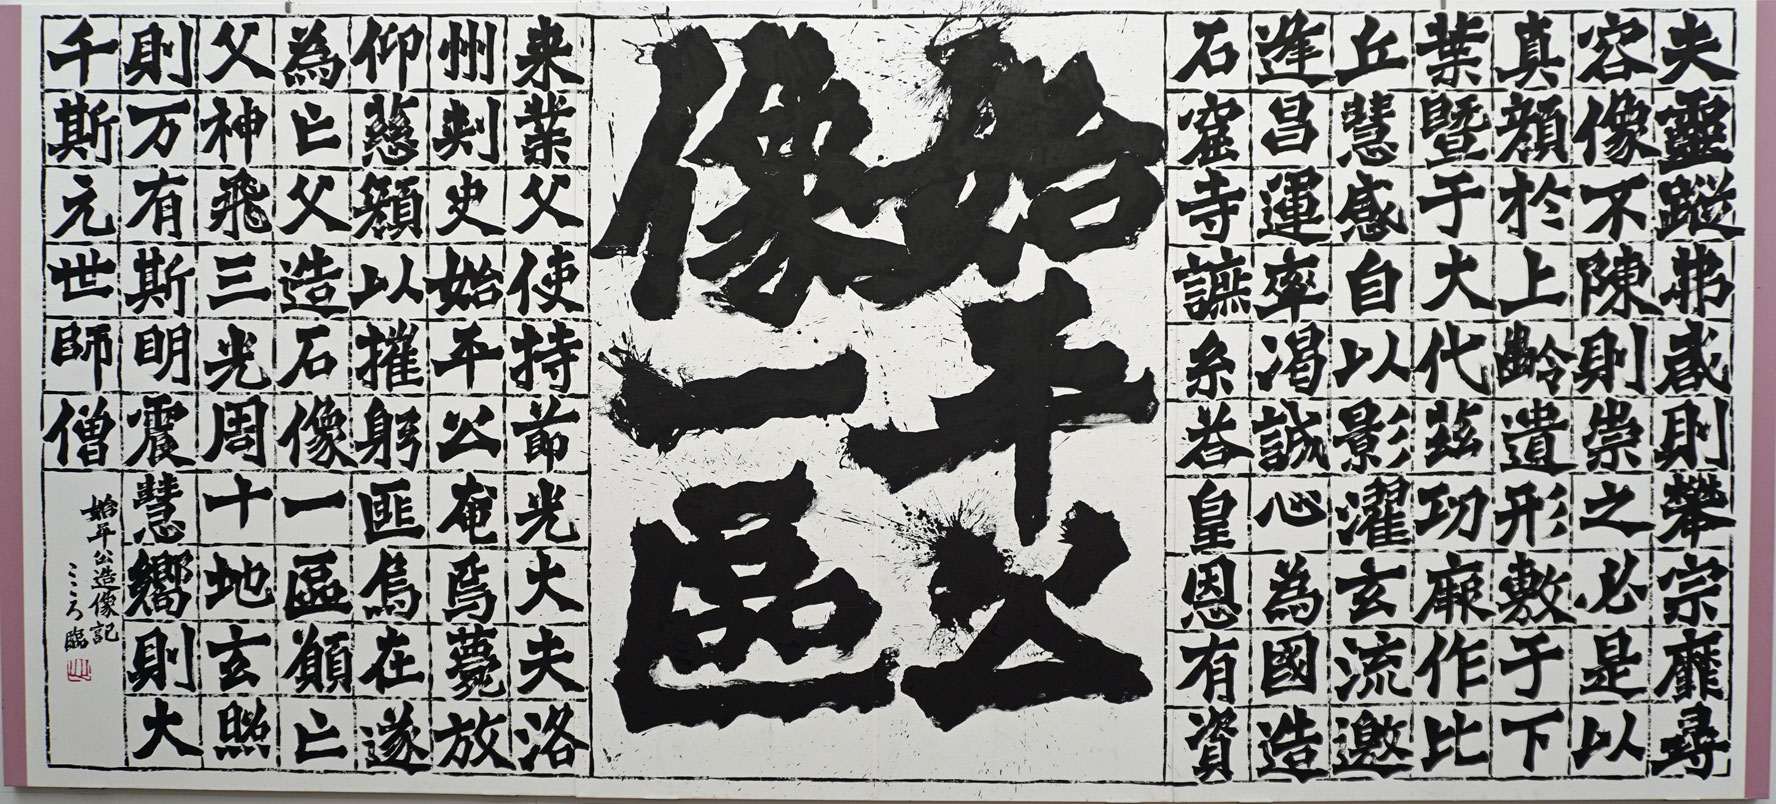 夫靈蹤弗啓則攀宗靡尋
容像不陳則崇之必是以
真顔於上齡遺形敷于下
葉暨于大代茲功厥作比
丘慧感自以影濯玄流邀
逢昌運率渇誠心為國造
石窟寺謡糸荅皇恩有資
始平公
像一區
来業父使持節光大夫洛
州刾史始平公奄焉薨放
仰慈顔以摧躬匪烏在遂
為亡父造石像一區願亡
父神飛三光周十地玄照
則万有斯明震慧嚮則大
千斯元世師僧
始平公造像記
こころ臨